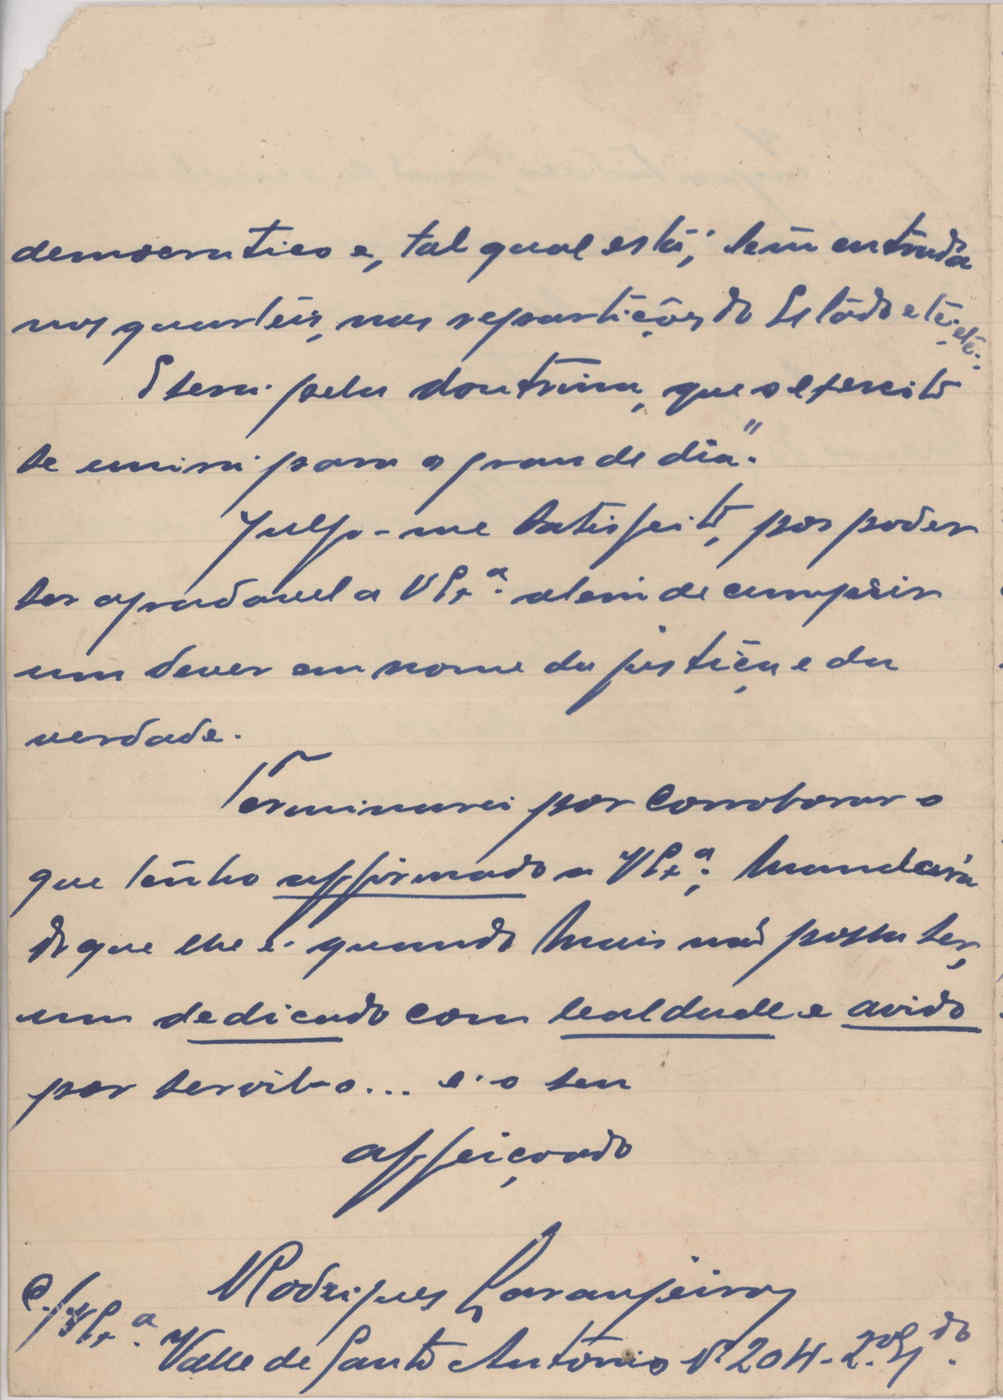 democratico e, tal qual está, tem entrada
nos quarteis, nas repartições do Estádo etc, etc.
Será pela doutrina, que o exercito
se unirá para o grande dia".
Julgo-me satisfeito, por poder
ser agradavel a V Exª. alem de cumprir
um dever em nome da justiça e da
verdade.
Terminarei por corroborar o
que tenho affirmado a V Exª. Mandará
do que lhe é quando mais não possa ser,
um dedicado com lealdade e avido
por servil-o... é o seu
affeiçoado
Rodrigues Laranjeira
C/ V Exª.
Valle de Santo António Nº 204-2º Eº do